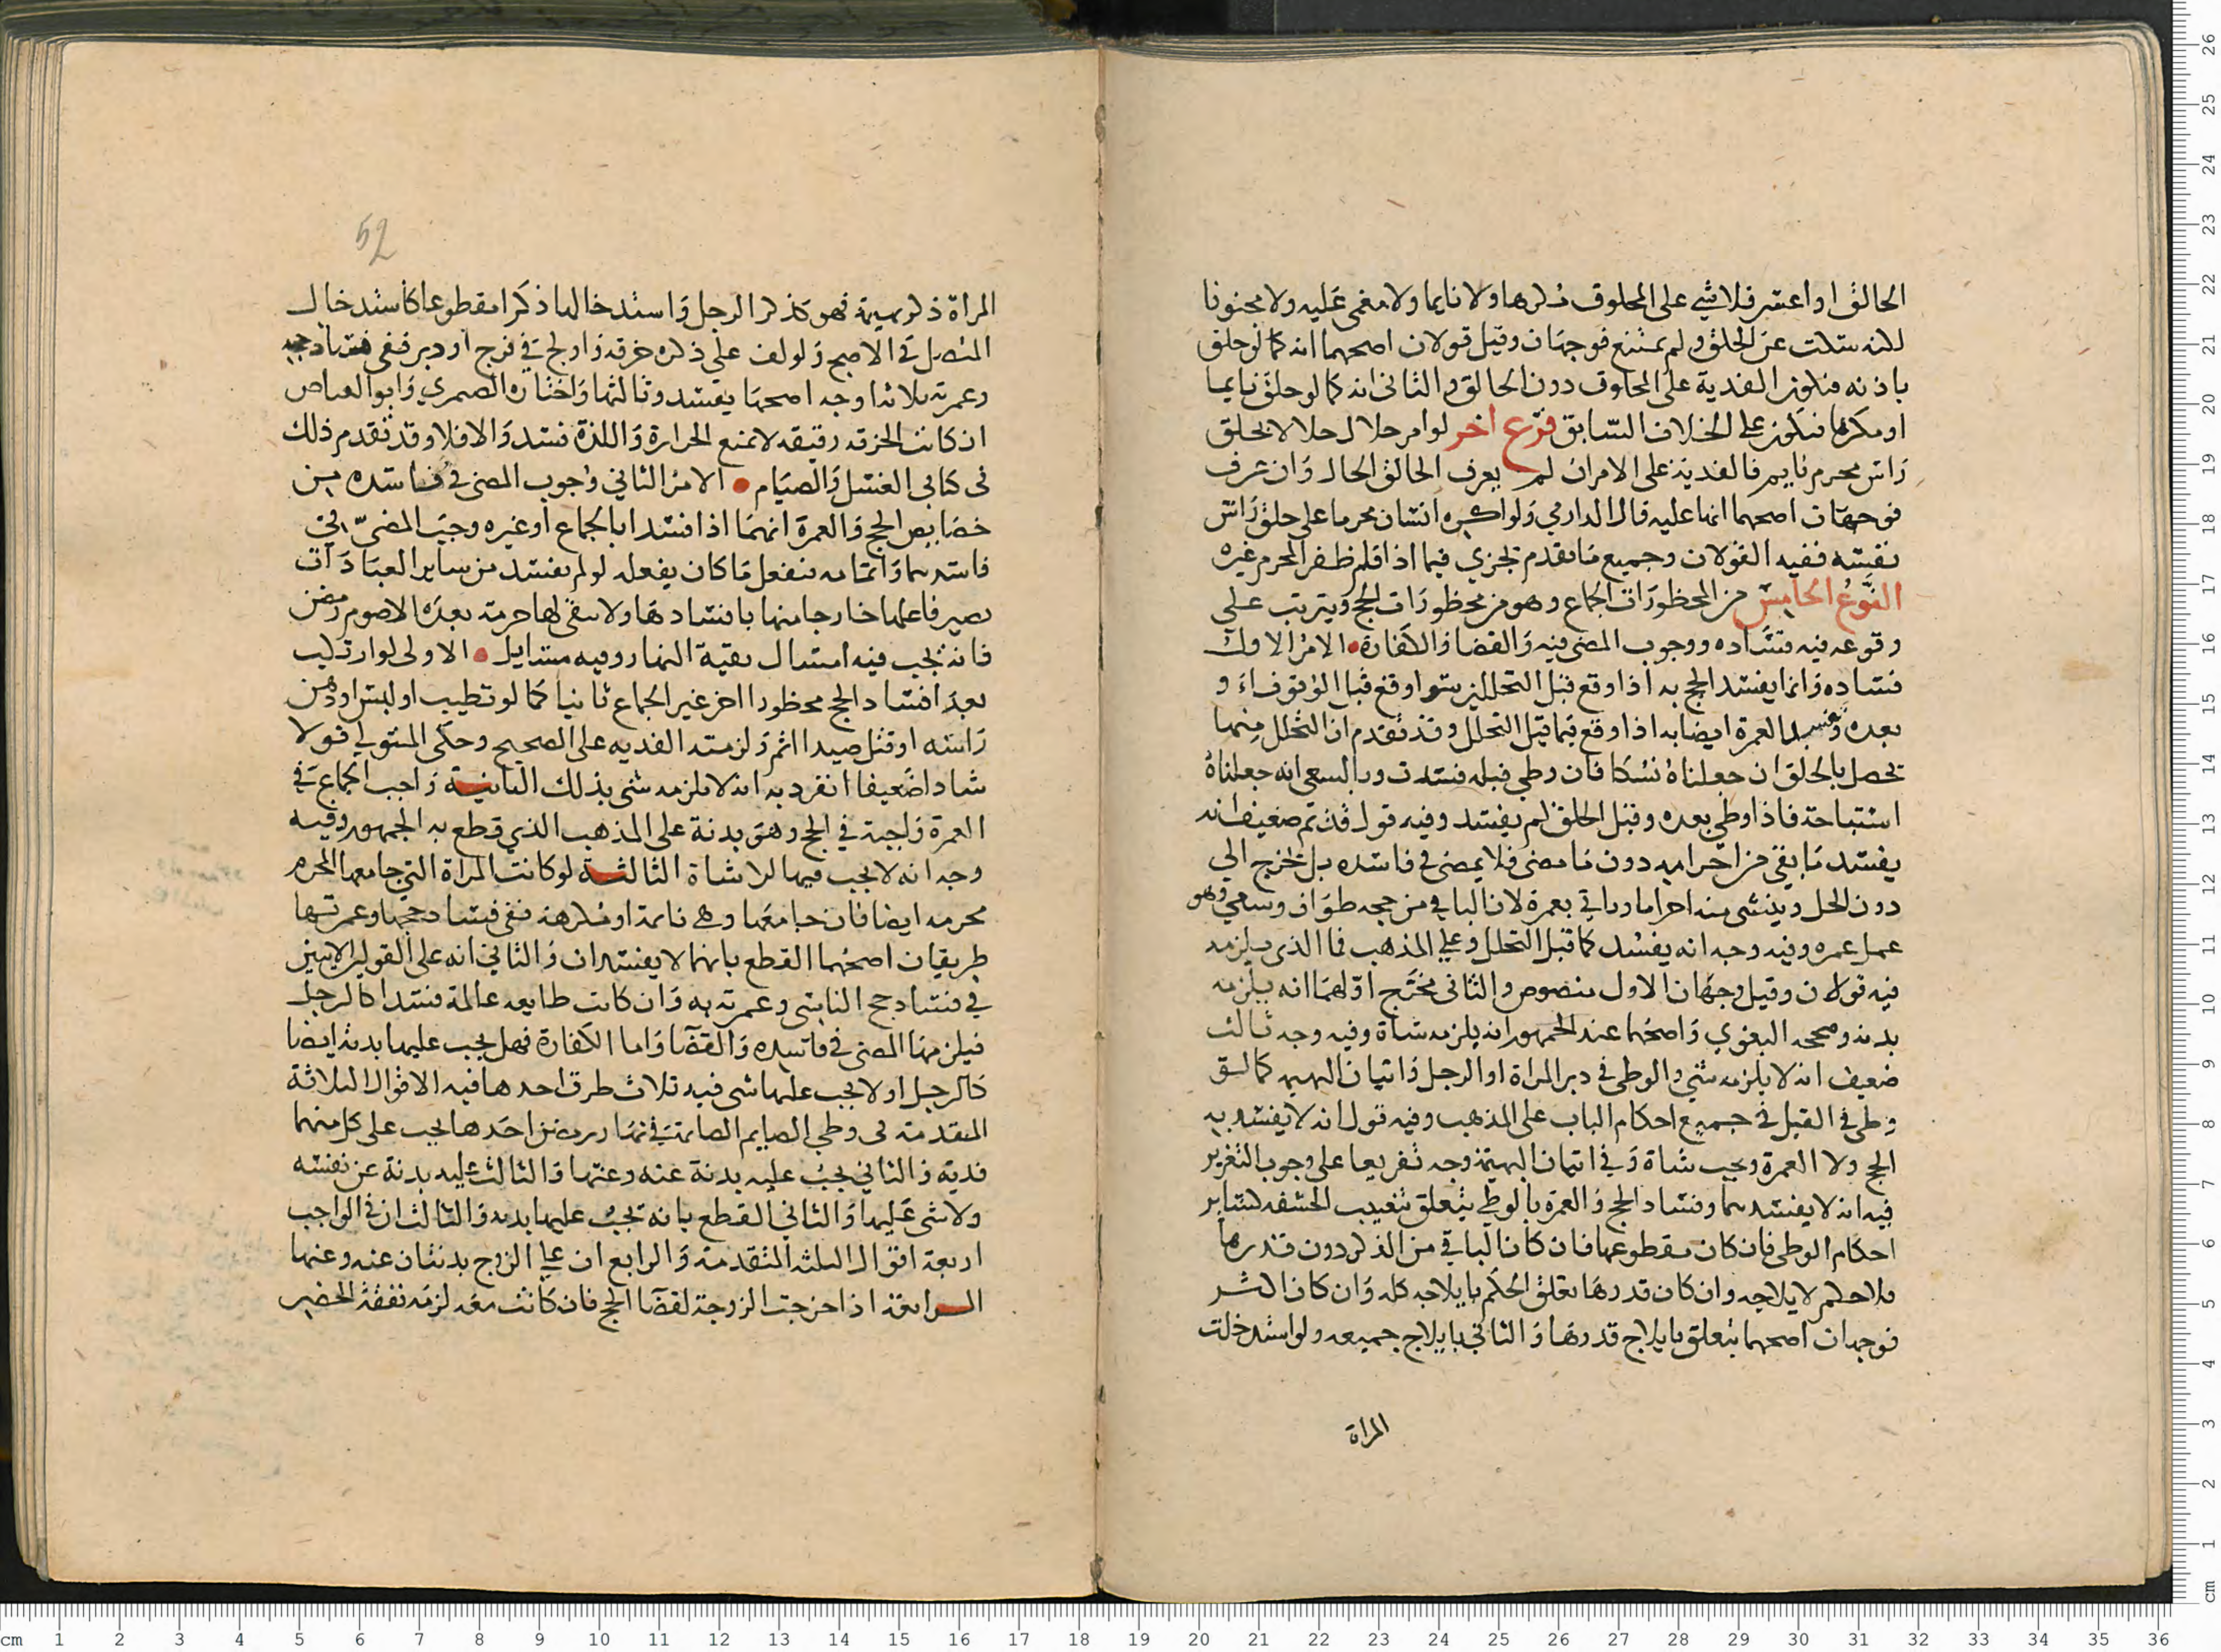 الحالق او اعسر فلا شي على المحلوق مكرها ولا نايما ولا مغمى عليه ولا مجنونا
لكنه سكت عن الحلق ولم يمتنع فوجهان وقيل قولان اصحهما انه كما لو حلق
باذنه فتكون الفدية على المحلوق دون الحالق والثاني انه كما لو حلق نايما
او مكرها فتكون على الخلاف السابق فرع اخر لو امر حلال حلالا بحلق
راس محرم نايم فالفدية على الامر ان لم يعرف الحالق الحال وان عرف
فوجهان اصحهما انها عليه قال الدارمي ولو اكره انسان محرما على حلق راس
نفسه ففيه القولان وجميع ما تقدم يجزي فيما اذا قلم ظفر المحرم غيره
النوع الخامس من المحظورات الجماع وهو من محظورات الحج ويترتب على
وقوعه فيه فساده ووجوب المضي فيه والقضا والكفارة الامر الاول
فساده وانما يفسد الحج به اذا وقع قبل التحللين سوا وقع قبل الوقوف او
بعده وتفسد العمرة ايضا به اذا وقع فيما قبل التحلل وقد تقدم ان التحلل منها
يحصل بالحلق ان جعلناه نسكا فان وطي قبله فسدت وبالسعي انه جعلناه
استباحة فاذا وطي بعده وقبل الحلق لم يفسد وفيه قول قديم ضعيف انه
يفسد ما بقي من احرامه دون ما مضى فلا يمضي في فاسده بل يخرج الي
دون الحل وينشي منه احراما وياتي بعمرة لان الباقي من حجه طواف وسعي وهو
عمل عمره وفيه وجه انه يفسد كما قبل التحلل وعلي المذهب فما الذي يلزمه
فيه قولان وقيل وجهان الاول منصوص والثاني مخرج اولهما انه يلزمه
بدنه وصححه البغوي واصحهما عند الجمهور انه يلزمه شاة وفيه وجه ثالث
ضعيف انه لا يلزمه شي والوطي في دبر المراة او الرجل واتيان البهيمه كما لسق
وطي في القبل في جميع احكام الباب على المذهب وفيه قول انه لا يفسد به
الحج ولا العمرة ويجب شاة وفي اتيان البهيمة وجه تفريعا على وجوب التعزير
فيه انه لا يفسد بها وفساد الحج والعمرة بالوطي يتعلق بتغييب الحشفه كساير
احكام الوطي فان كان مقطوعها فان كان الباقي من الذكر دون قدرها
فلا حكم لايلاجه وان كان قدرها تعلق الحكم بايلاجه كله وان كان اكثر
فوجهان اصحهما يتعلق بايلاج قدرها والثاني بايلاج جميعه ولو استدخلت
المراة
52
المراة ذكر بهيمة فهو كذكر الرجل واستدخالها ذكرا مقطوعا كاستدخال
المتصل في الاصح ولو لف على ذكره خرقه واولج في فرج او دبر ففي فساد حجه
وعمرته ثلاثه اوجه اصحها يفسد وثالثها واختاره الصمري وابو العباس
ان كانت الخرقه رقيقه لا تمنع الحرارة واللذة فسد والا فلا وقد تقدم ذلك
في كتابي الغسل والصيام الامر الثاني وجوب المضي في فاسده من
خصايص الحج والعمرة انهما اذا فسدا بالجماع او غيره وجب المضي في
فاسدهما واتمامه فيفعل ما كان يفعله لو لم يفسد من ساير العبادات
يصير فاعلها خارجا منها بافسادها ولا يبقى لها حرمة بعده الا صوم رمضن
فانه يجب فيه امساك بقية النهار وفيه مسايل الاولى لو ارتكب
بعد افساد الحج محظورا اخر غير الجماع ثانيا كما لو تطيب او لبس او دهن
راسه او قتل صيدا اثم ولزمته الفديه على الصحيح وحكى المتولي قولا
شاذا ضعيفا انفرد به انه لا يلزمه شي بذلك الثانية واجب الجماع في
العمرة واجبة في الحج وهو بدنة على المذهب الذي قطع به الجمهور وفيه
وجه انه لا يجب فيها الا شاة الثالثة لو كانت المراة التي جامعها المحرم
محرمه ايضا فان جامعها وهي نايمة او مكرهة ففي فساد حجها وعمرتها
طريقان اصحهما القطع بانهما لا يفسدان والثاني انه على القولين الاتيين
في فساد حج الناسي وعمرته به وان كانت طايعه عالمة فسدا كالرجل
فيلزمها المضي في فاسده والقضا واما الكفارة فهل يجب عليها بدنة ايضا
كالرجل او لا يجب عليها شي فيه ثلاث طرق احدها فيه الاقوال الثلاثة
المتقدمة في وطي الصايم الصايمة في نهار رمضن احدها يجب على كل منهما
فدية والثاني يجب عليه بدنة عنه وعنها والثالث عليه بدنة عن نفسه
ولا شي عليها والثاني القطع بانه يجب عليها بدنه والثالث ان في الواجب
اربعة اقوال الثلثه المتقدمة والرابع ان علي الزوج بدنتان عنه وعنها
الرابعة اذا خرجت الزوجة لقضا الحج فان كانت معه لزمه نفقة الحضر